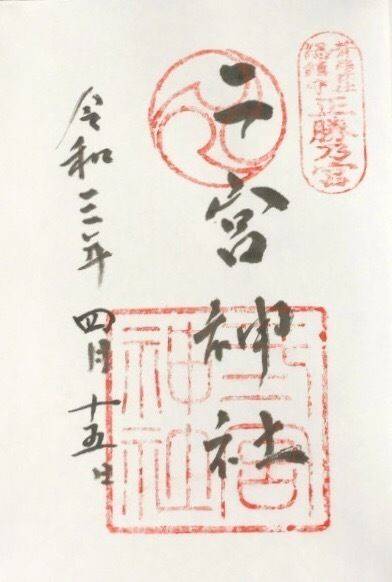 正勝乃宮
二宮神社
二宮
神社
令和三年 四月 十五日